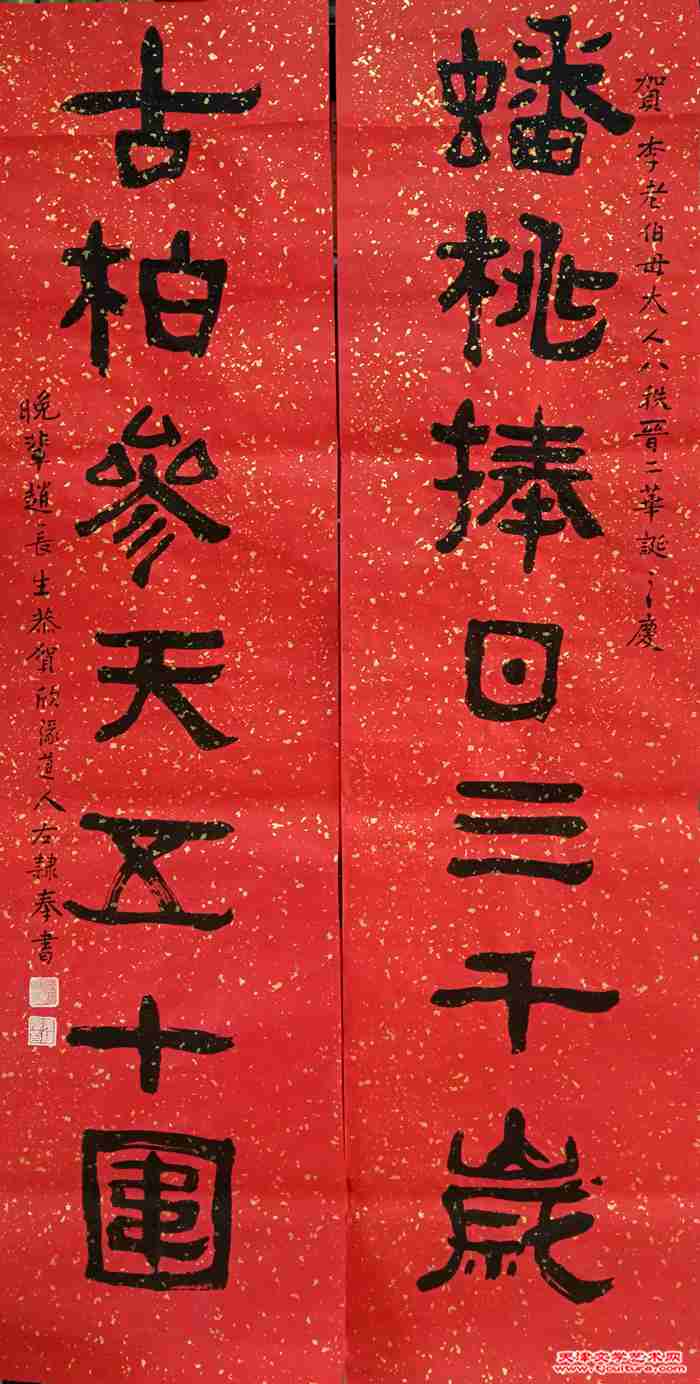 賀李老伯母大人八秩晉二華誕之慶
蟠桃捧日三千歲
古柏參天五十圍
晚輩趙長生恭賀欣濠道人左隸奉書
天津文学艺术网
www.tjcultura.com